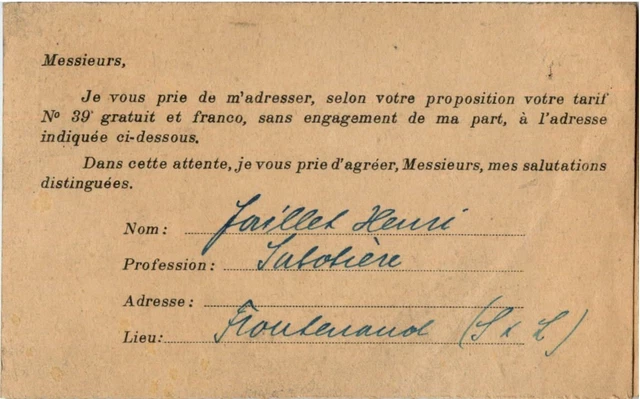 Messieurs,
Je vous prie de m'adresser, selon votre proposition votre tarif
No 39 gratuit et franco, sans engagement de ma part, à l'adresse
indiquée ci-dessous.
Dans cette attente, je vous prie d'agréer, Messieurs, mes salutations
distinguées.
Nom: Jaillet Henri
Profession: Sabotière
Adresse:
Lieu: Frontenaud (S x L)